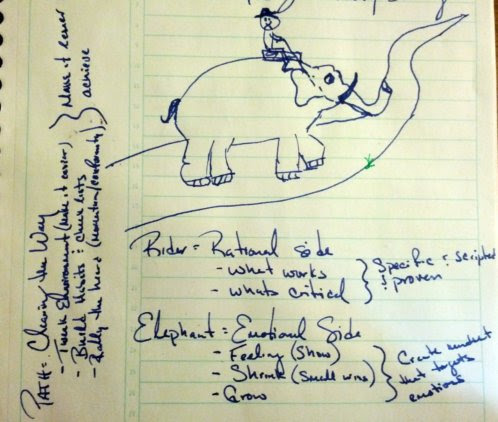 Rider = Rational side
- what works
- whats critical
Specific & scripted
& proven
Elephant = Emotional Side
- Feeling (Show)
- Shrink (Small wins)
- Grow
Create mindset
that targets
emotions
PATH: Clearing the Way
- Tweak Environment (make it easier)
- Build Habits & check lists
- Rally the herd (momentum/conformity)
Make it easier
achieve